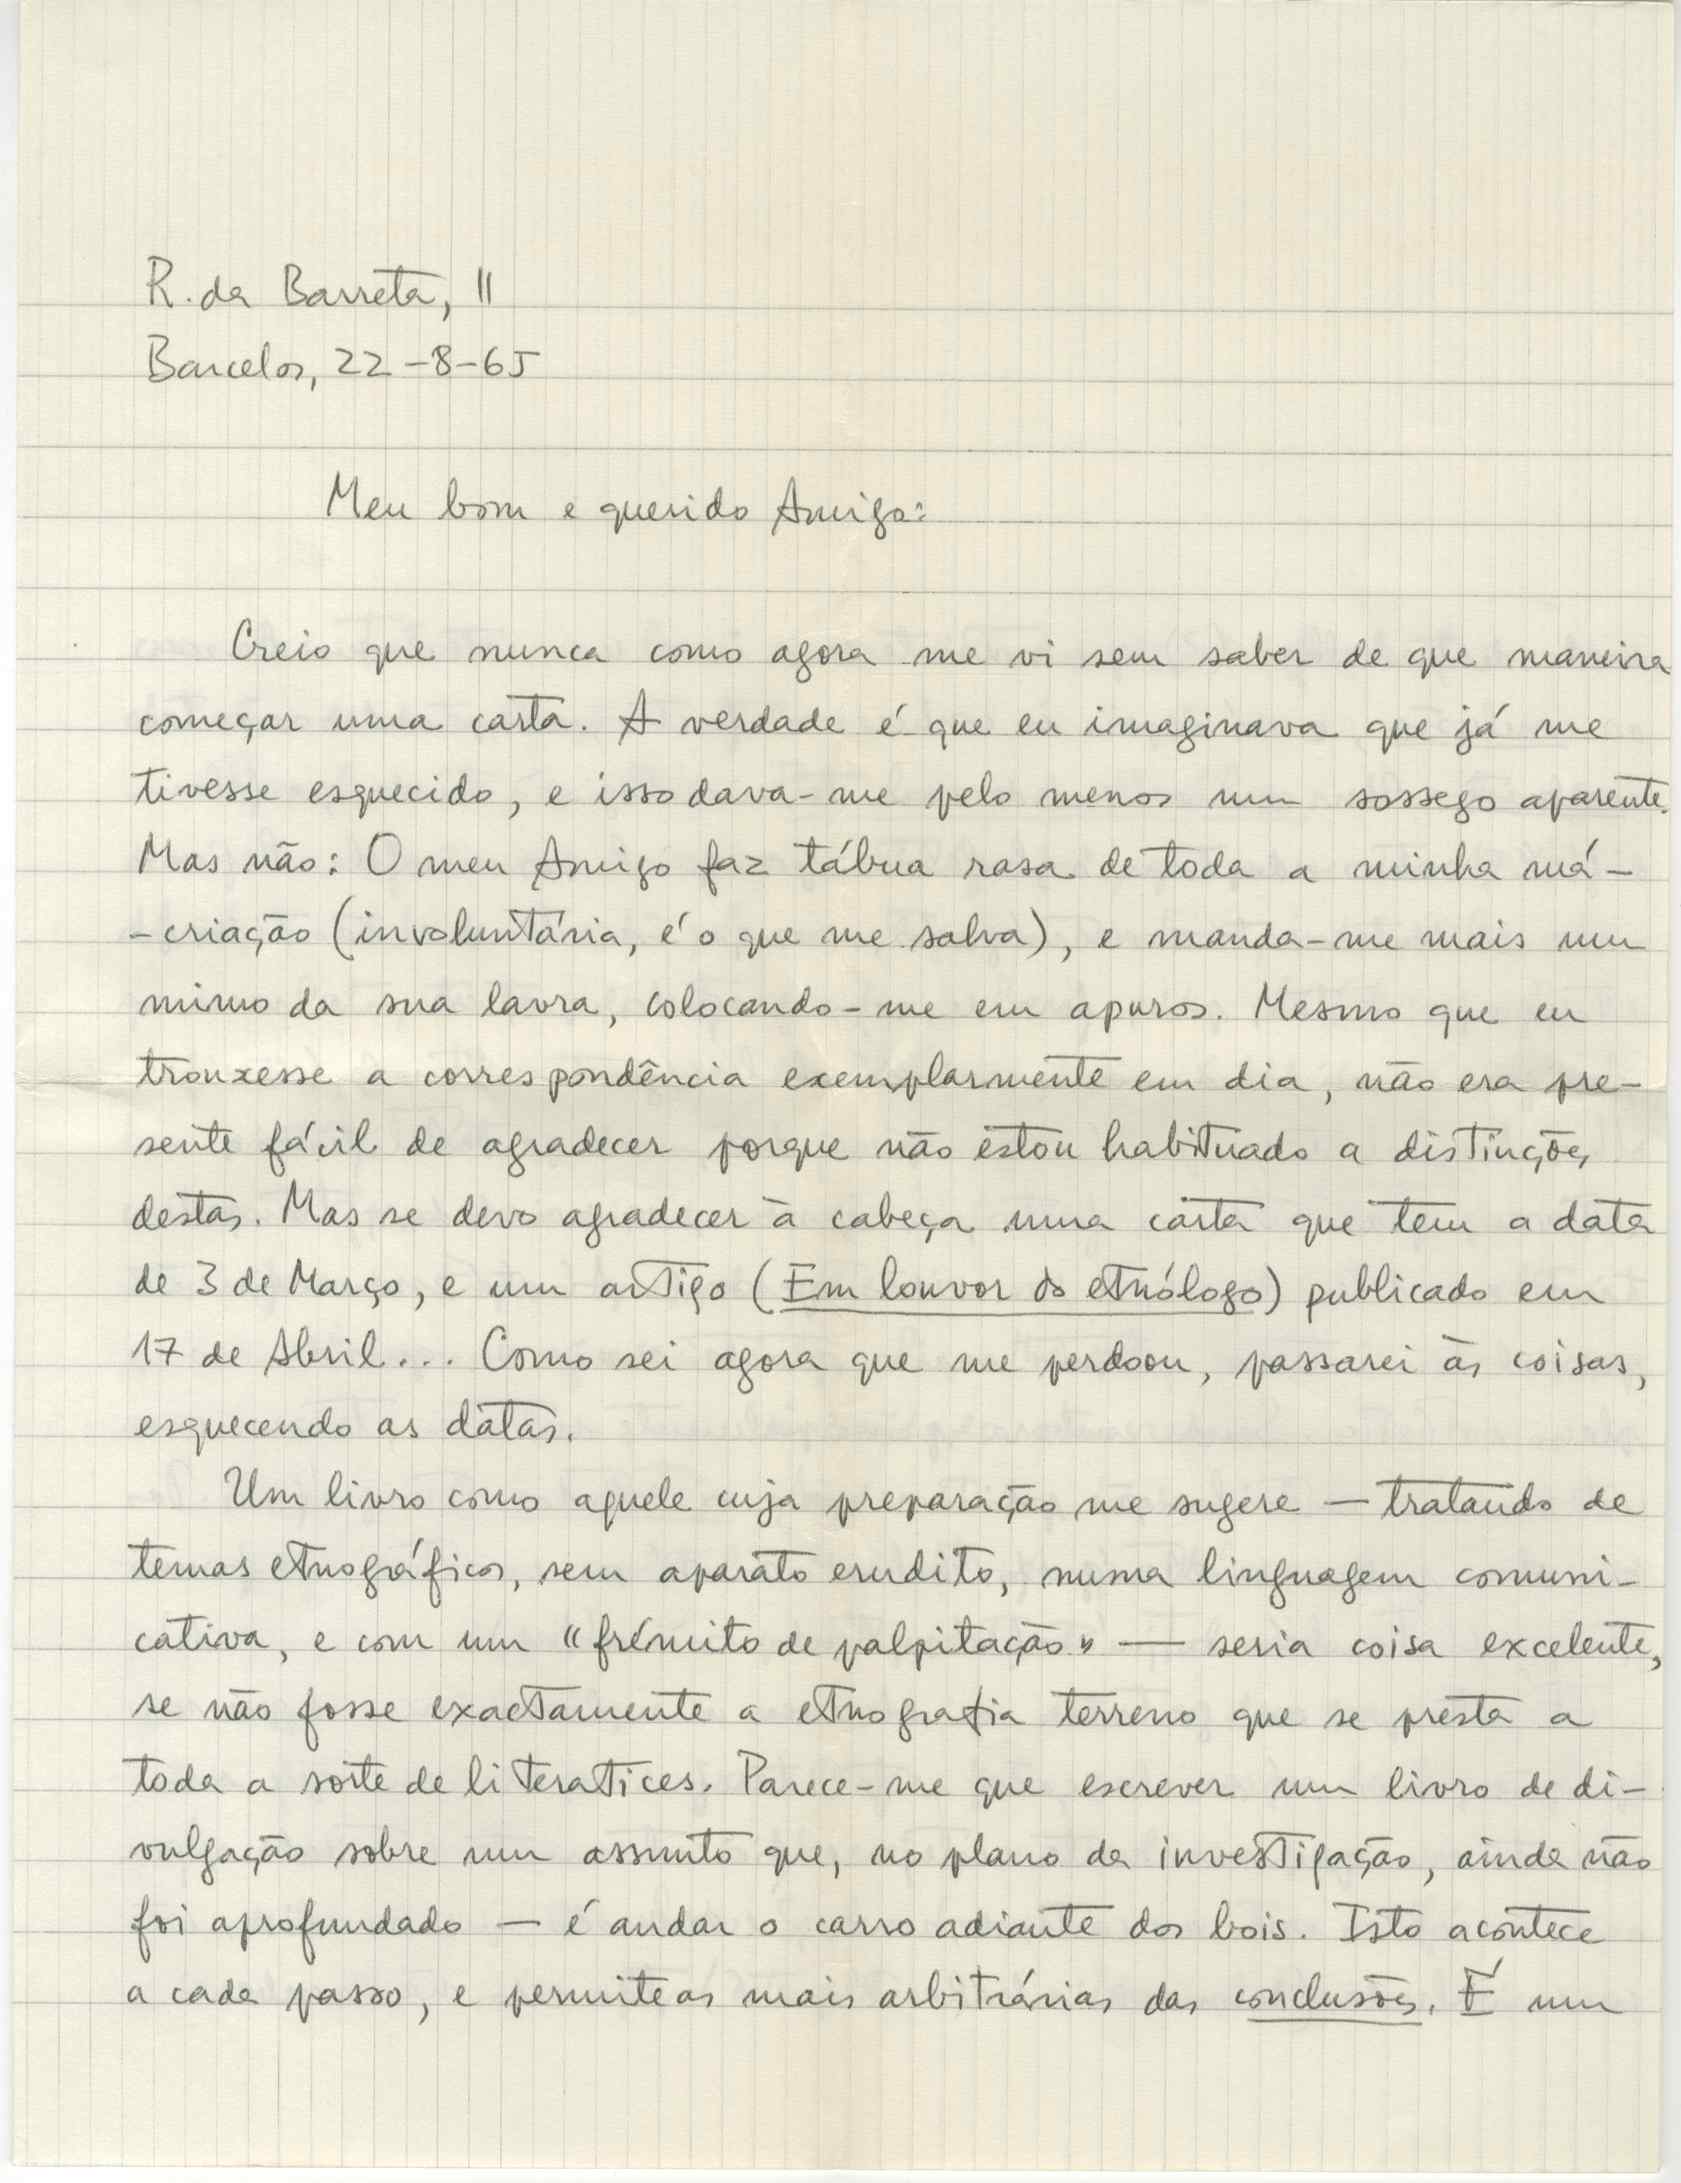 R. da Barreta, 11
Barcelos, 22-8-65
Meu bom e querido Amigo:
Creio que nunca como agora me vi sem saber de que maneira
começar uma carta. A verdade é que eu imaginava que já me
tivesse esquecido, e isso dava-me pelo menos um sossego aparente.
Mas não: O meu Amigo faz tábua rasa de toda a minha má-
-criação (involuntária, é o que me salva), e manda-me mais um
mimo da sua lavra, colocando-me em apuros. Mesmo que eu
trouxesse a correspondência exemplarmente em dia, não era pre-
sente fácil de agradecer porque não estou habituado a distinções
destas. Mas se devo agradecer à cabeça uma carta que tem a data
de 3 de Março, e um artigo (Em louvor do etnólogo) publicado em
17 de Abril... Como sei agora que me perdoou, passarei às coisas,
esquecendo as datas.
Um livro como aquele cuja preparação me sugere — tratando de
temas etnográficos, sem aparato erudito, numa linguagem comuni-
cativa, e com um «frémito de palpitação» — seria coisa excelente,
se não fosse exactamente a etnografia terreno que se presta a
toda a sorte de literatices. Parece-me que escrever um livro de di-
vulgação sobre um assunto que, no plano da investigação, ainda não
foi aprofundado — é andar o carro adiante dos bois. Isto acontece
a cada passo, e permite as mais arbitrárias das conclusões. É um